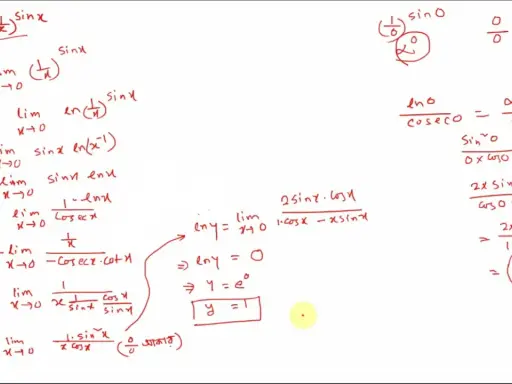 (1/x)^sinx
lim x→0 (1/x)^sinx
lim x→0 ln(1/x)^sinx
lim x→0 sinx ln(x⁻¹)
lim x→0 sinx lnx
lim x→0 1·lnx / cosecx
- lim x→0 (1/x) / (-cosecx·cotx)
lim x→0 1 / (x 1/sinx cosx/sinx)
lim x→0 1·sin²x / (x cosx) (0/0
lny = lim x→0 2sinx·cosx / (1·cosx - xsinx)
⇒ lny = 0
⇒ y = e⁰
⇒ y = 1
(1/0)^sin0 0/0
∝⁰
ln0 / cosec0 =
sin²0 / (0×cos0
2×sin
cos0
= 2×
= (